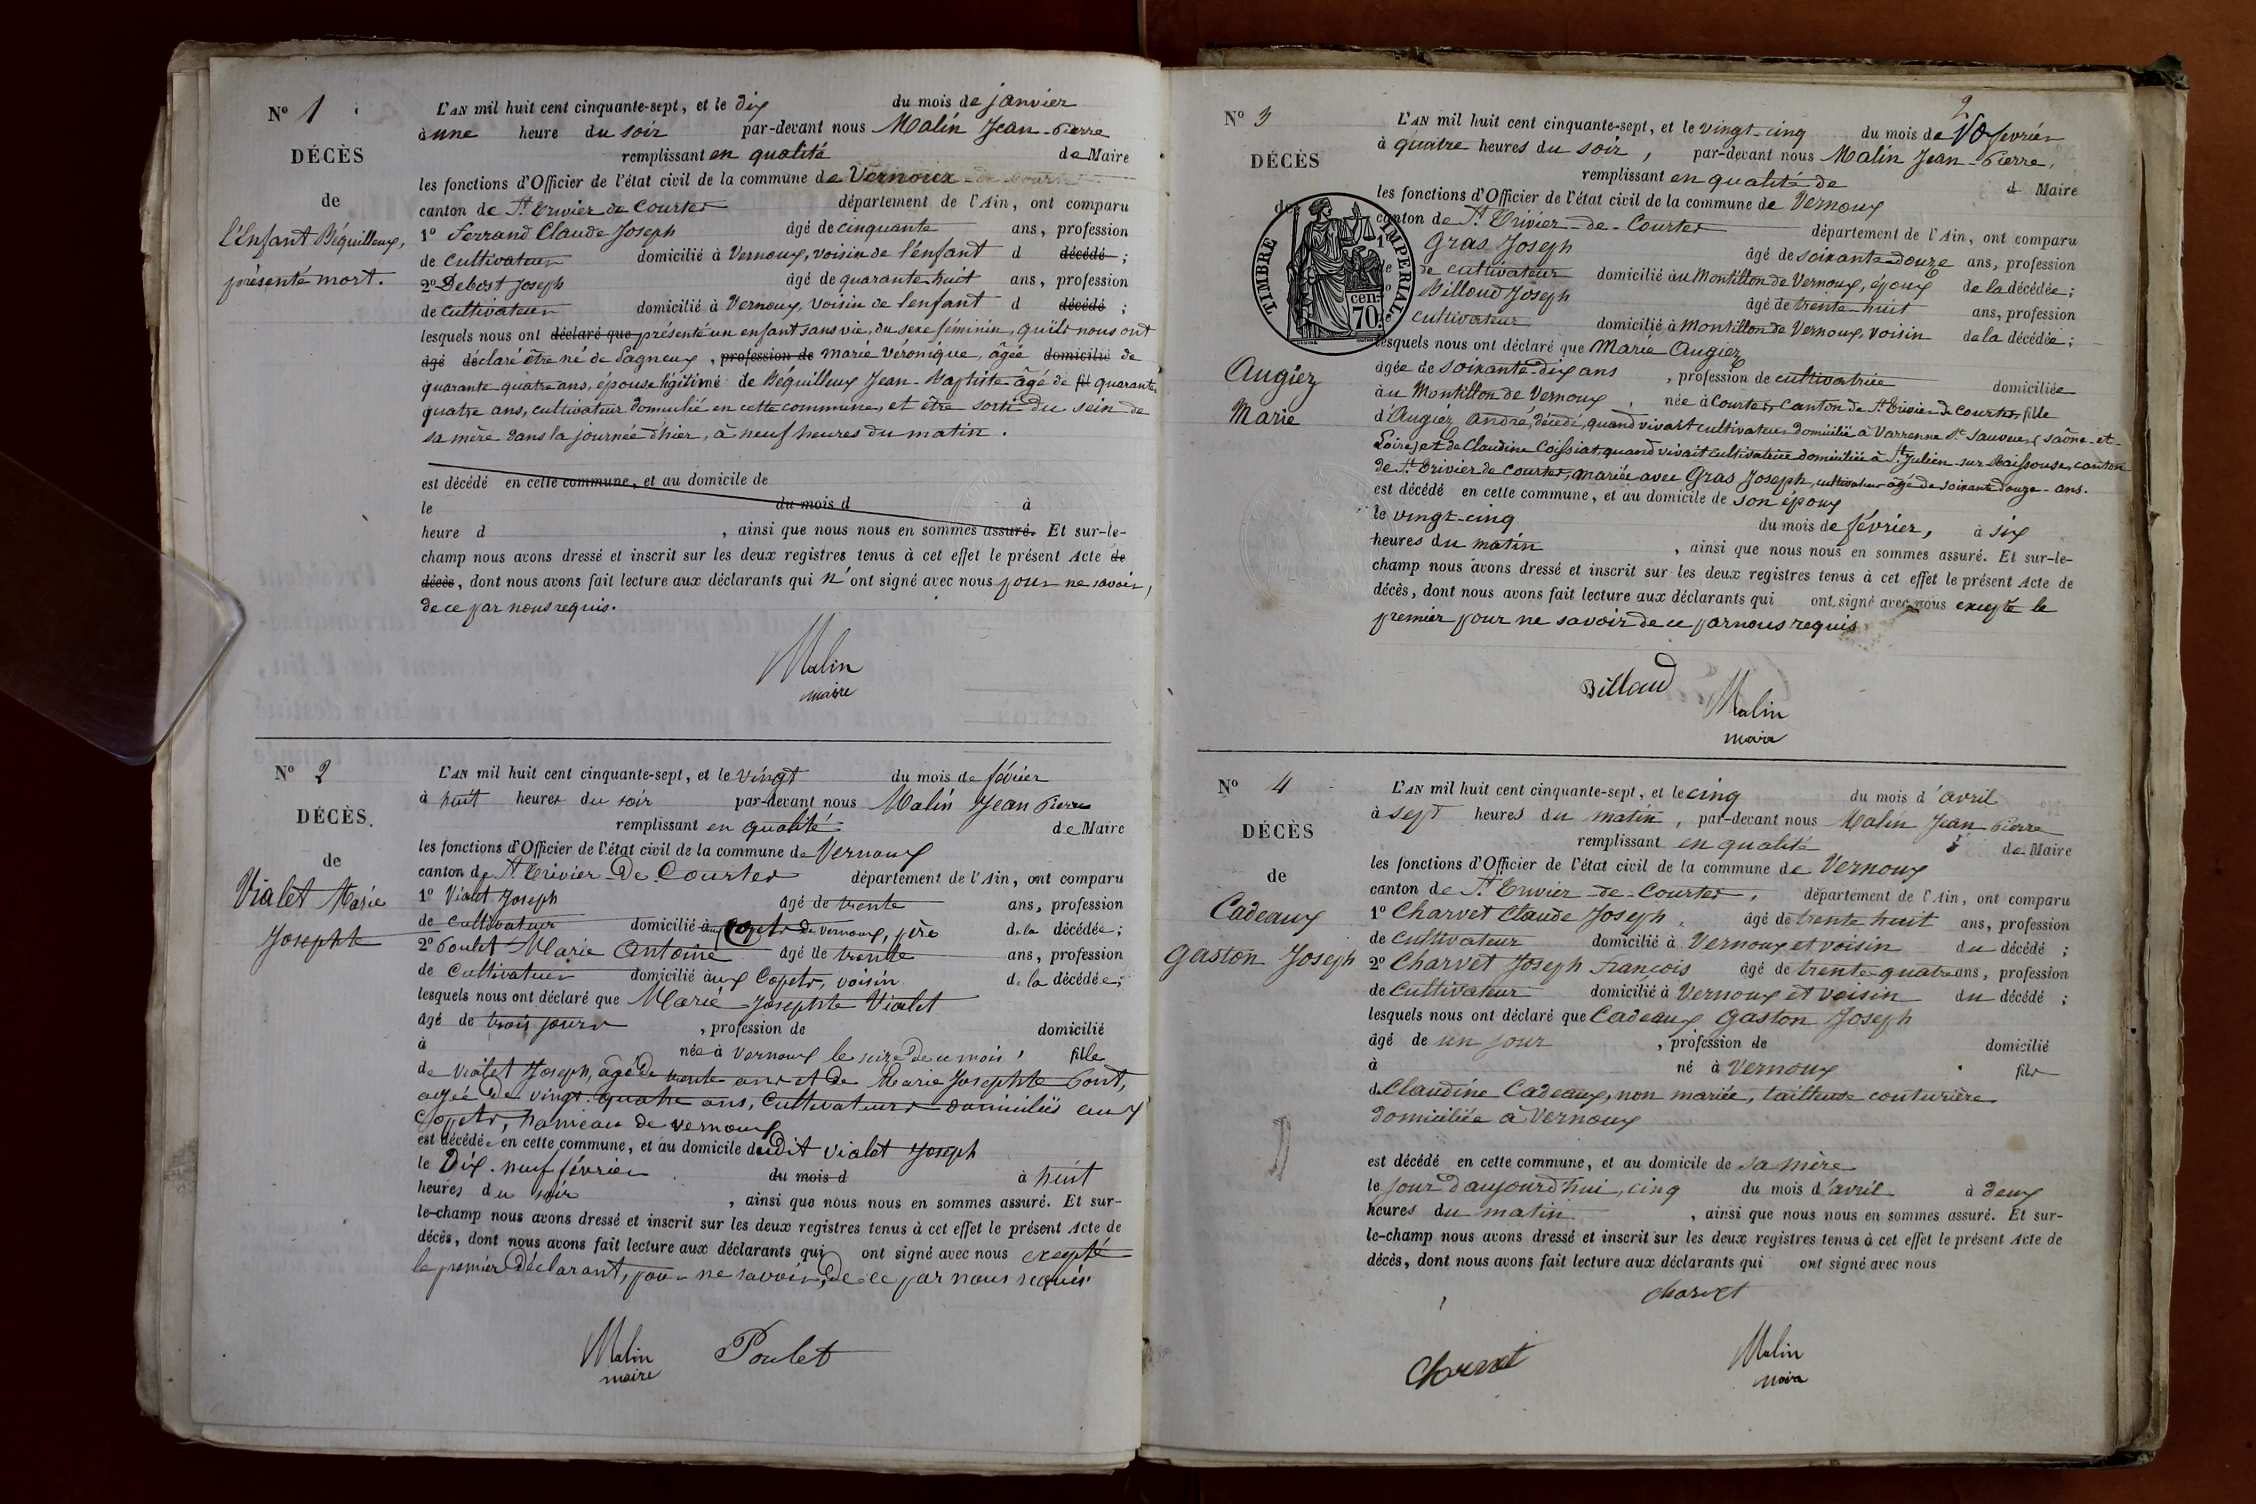 N° 1
DÉCÈS
de
l'Enfant Béquilleux,
présenté mort.
L'AN mil huit cent cinquante-sept, et le dix du mois de janvier
à une heure du soir par-devant nous Malin Jean-Pierre
remplissant en qualité de Maire
les fonctions d'Officier de l'état civil de la commune de Vernoux
canton de St Trivier de Courtes département de l'Ain, ont comparu
1° Ferrand Claude Joseph âgé de cinquante ans, profession
de cultivateur domicilié à Vernoux, voisin de l'enfant d décédé ;
2° Debost Joseph âgé de quarante huit ans, profession
de cultivateur domicilié à Vernoux, voisin de l'enfant d décédé ;
lesquels nous ont déclaré que présenté un enfant sans vie, du sexe féminin, qu'ils nous ont
âgé déclaré être né de Pagneux, profession de marie Véronique, âgée domicilié de
quarante quatre ans, épouse légitime de Béquilleux Jean-Baptiste âgé de fil quarante
quatre ans, cultivateur domicilié en cette commune, et être sorti du sein de
sa mère dans la journée d'hier, à neuf heures du matin.
est décédé en cette commune, et au domicile de
le du mois d à
heure d , ainsi que nous nous en sommes assuré. Et sur-le-
champ nous avons dressé et inscrit sur les deux registres tenus à cet effet le présent Acte de
décès, dont nous avons fait lecture aux déclarants qui n'ont signé avec nous pour ne savoir,
de ce par nous requis.
Malin
maire
N° 2
DÉCÈS.
de
Vialet Marie
Josephte
L'AN mil huit cent cinquante-sept, et le vingt du mois de février
à huit heures du soir par-devant nous Malin Jean Pierre
remplissant en qualité de Maire
les fonctions d'Officier de l'état civil de la commune de Vernoux
canton de St Trivier De Courtes département de l'Ain, ont comparu
1° Vialet Joseph âgé de trente ans, profession
de cultivateur domicilié aux Copets de vernoux, père de la décédée ;
2° Poulet Marie Antoine âgé de trente ans, profession
de cultivateur domicilié aux Copets, voisin de la décédée ;
lesquels nous ont déclaré que Marie Josephte Vialet
âgé de trois jours , profession de domicilié
à née à vernoux le seize de ce mois, fille
de Vialet Joseph, âgé de trente ans et de Marie Josephte Pont,
agée De vingt quatre ans, Cultivateurs domiciliés aux
Copets, hameau de vernoux
est décédée en cette commune, et au domicile dudit Vialet Joseph
le Dix-neuf février du mois d à huit
heures du soir , ainsi que nous nous en sommes assuré. Et sur-
le-champ nous avons dressé et inscrit sur les deux registres tenus à cet effet le présent Acte de
décès, dont nous avons fait lecture aux déclarants qui ont signé avec nous excepté
le premier Déclarant, pour ne savoir, de ce par nous requis
Malin
maire
Poulet
2
N° 3
DÉCÈS
de
Augiez
Marie
TIMBRE IMPÉRIAL
70 cen.
L'AN mil huit cent cinquante-sept, et le vingt-cinq du mois de février
à quatre heures du soir, par-devant nous Malin Jean-Pierre,
remplissant en qualité de d Maire
les fonctions d'Officier de l'état civil de la commune de Vernoux
canton de St Trivier-de-Courtes département de l'Ain, ont comparu
1° Gras Joseph âgé de soixante-douze ans, profession
de cultivateur domicilié au Montillon de Vernoux, époux de la décédée ;
Billoud Joseph âgé de trente-huit ans, profession
cultivateur domicilié à Montillon de Vernoux, voisin de la décédée ;
lesquels nous ont déclaré que Marie Augiez
âgée de soixante-dix ans , profession de cultivatrice domiciliée
à au Montillon de Vernoux, née à Courtes, Canton de St Trivier de Courtes, fille
d'Augiez André, décédé, quand vivait cultivateur domicilié à Varrenne St Sauveur (Saône-et-
Loire) et de Claudine Coissiat, quand vivait cultivatrice domiciliée à St Julien-sur-Reissouse, canton
de St Trivier de Courtes, mariée avec Gras Joseph, cultivateur âgé de soixante douze-ans.
est décédé en cette commune, et au domicile de son époux
le vingt-cinq du mois de février, à six
heures du matin , ainsi que nous nous en sommes assuré. Et sur-le-
champ nous avons dressé et inscrit sur les deux registres tenus à cet effet le présent Acte de
décès, dont nous avons fait lecture aux déclarants qui ont signé avec nous excepté le
premier pour ne savoir de ce par nous requis
Billoud
Malin
maire
N° 4
DÉCÈS
de
Cadeaux
Gaston Joseph
L'AN mil huit cent cinquante-sept, et le cinq du mois d'avril
à sept heures du matin, par-devant nous Malin Jean Pierre
remplissant en qualité de Maire
les fonctions d'Officier de l'état civil de la commune de Vernoux
canton de St Trivier-de-Courtes, département de l'Ain, ont comparu
1° Charvet Claude Joseph, âgé de trente huit ans, profession
de cultivateur domicilié à Vernoux et voisin du décédé ;
2° Charvet Joseph François âgé de trente-quatre ans, profession
de cultivateur domicilié à Vernoux et voisin du décédé ;
lesquels nous ont déclaré que Cadeaux Gaston Joseph
âgé de un jour , profession de domicilié
à né à Vernoux fils
de Claudine Cadeaux, non mariée, tailleuse couturière
domiciliée à Vernoux
est décédé en cette commune, et au domicile de sa mère
le jour d'aujourd'hui, cinq du mois d'avril à deux
heures du matin , ainsi que nous nous en sommes assuré. Et sur-
le-champ nous avons dressé et inscrit sur les deux registres tenus à cet effet le présent Acte de
décès, dont nous avons fait lecture aux déclarants qui ont signé avec nous
Charvet
Charvet
Malin
maire